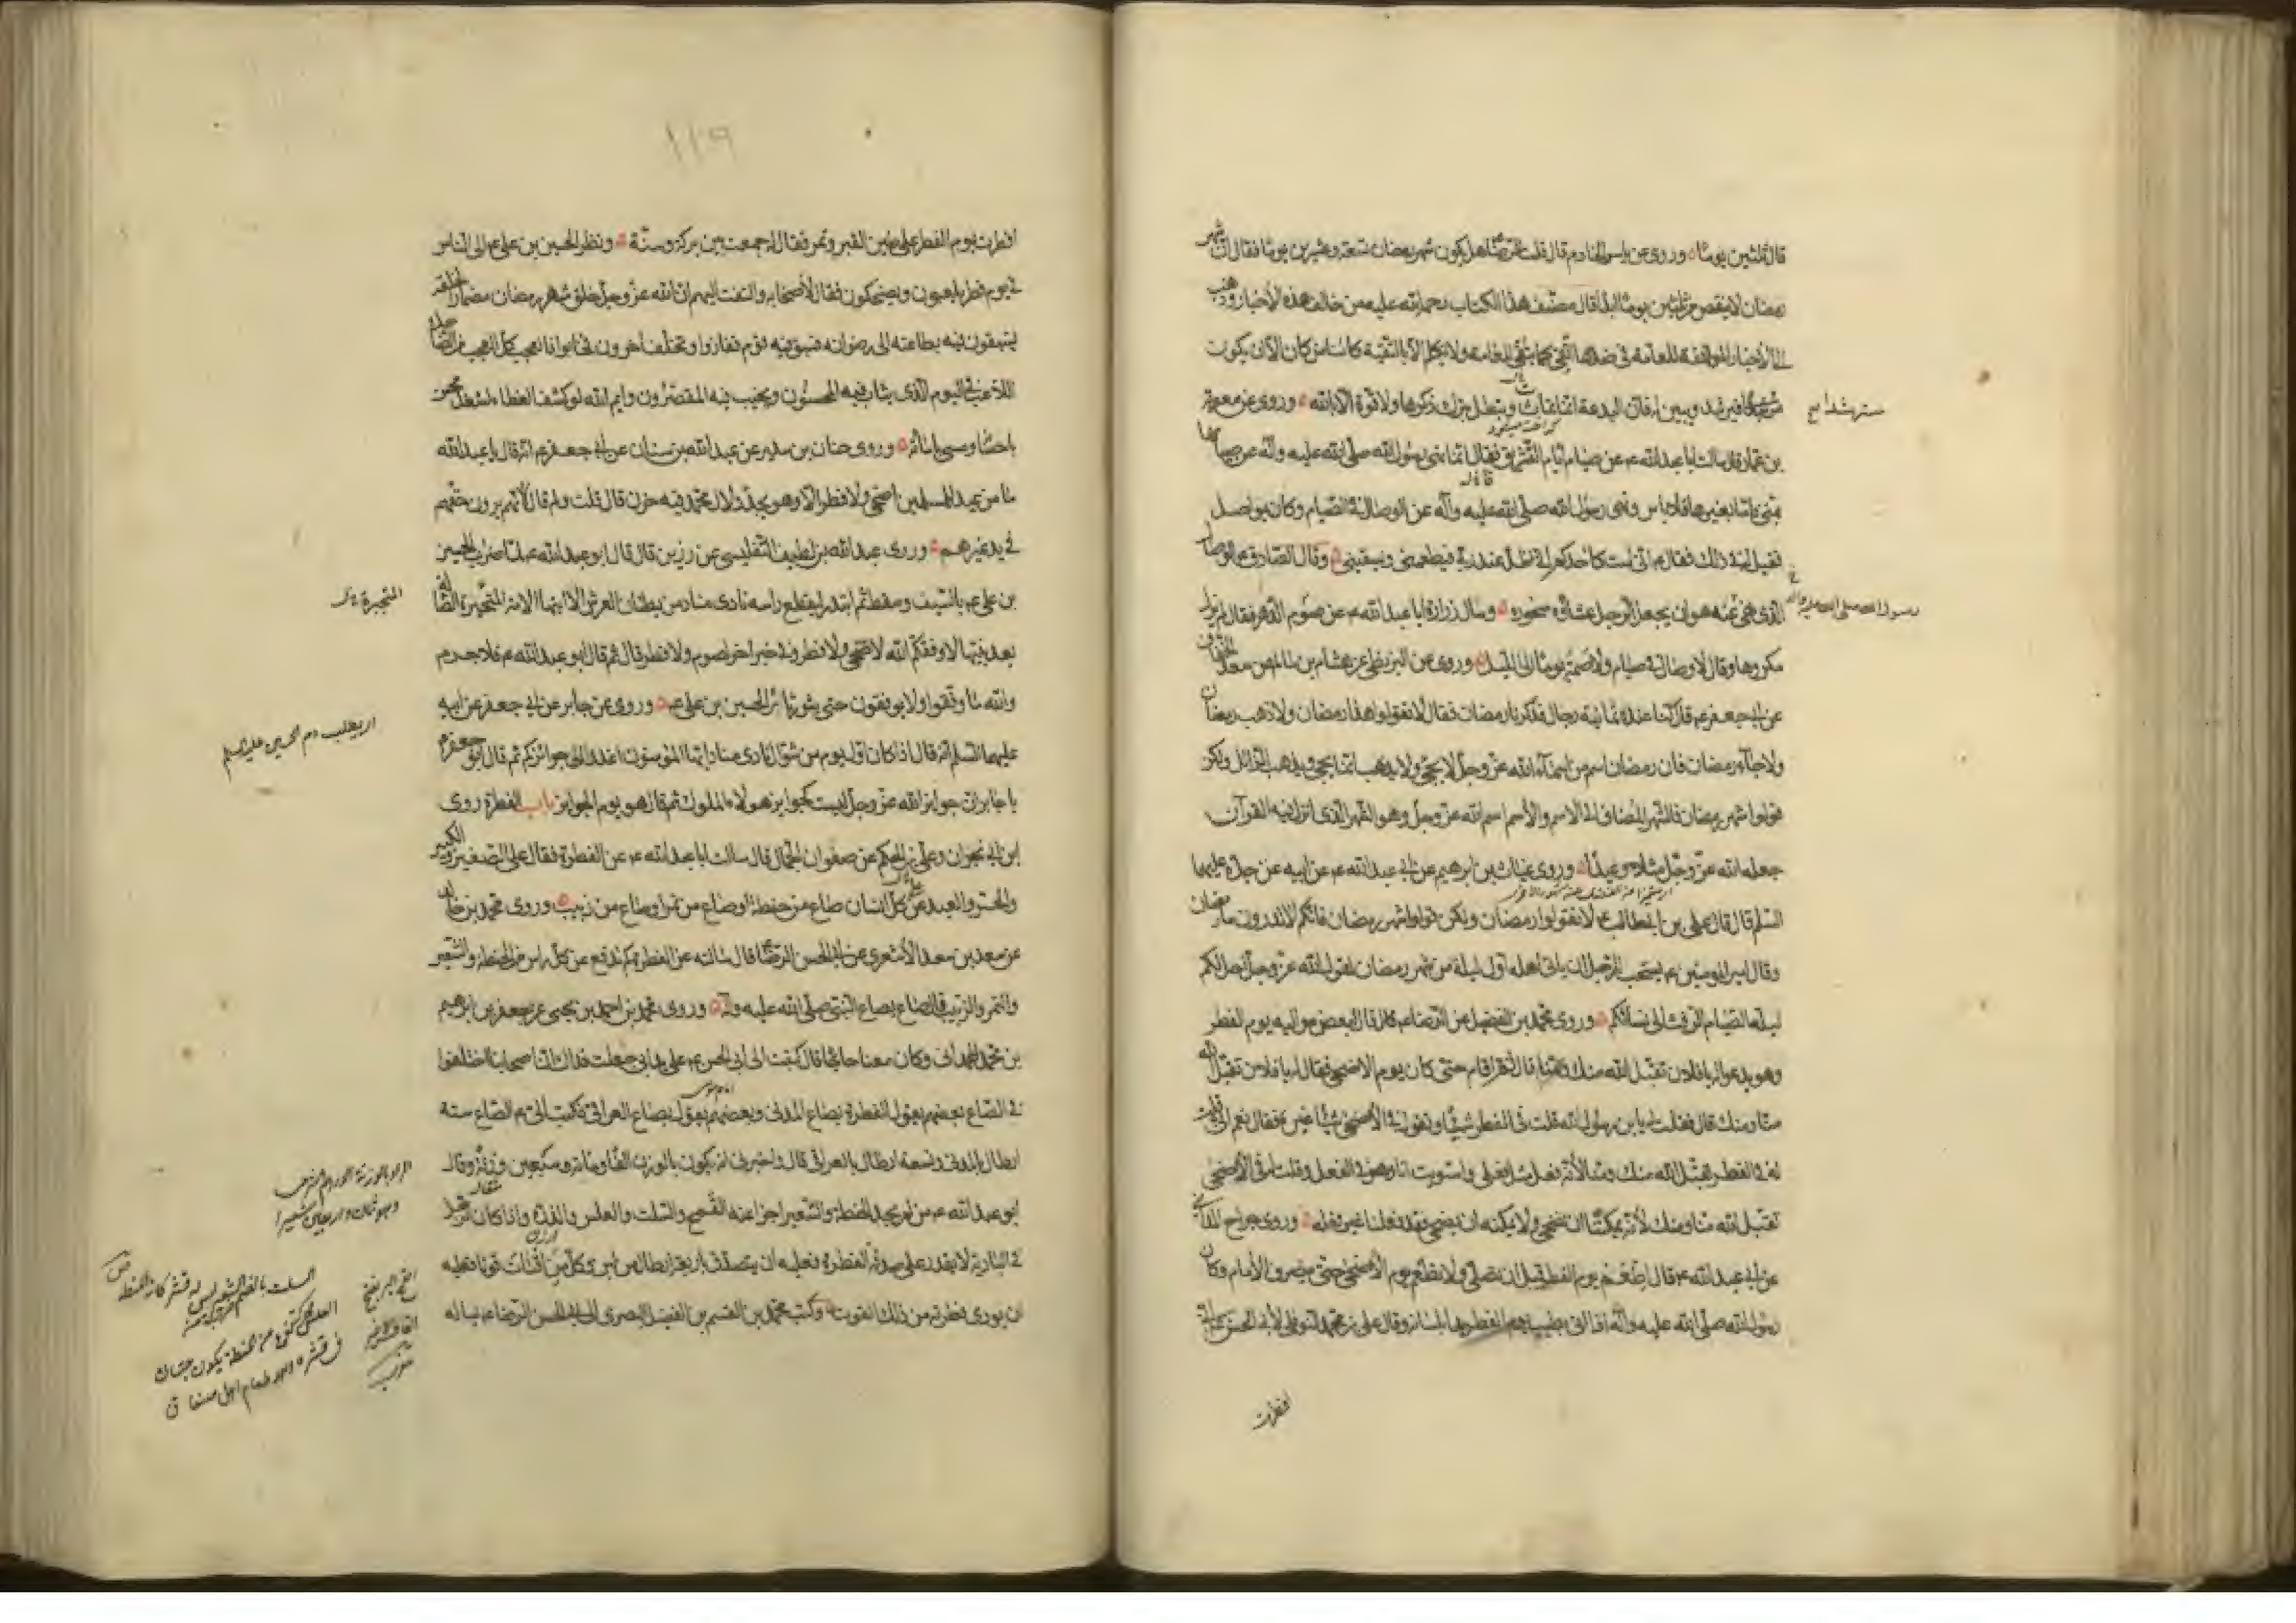 قال ثلثين يوما وروى عن ياسر الخادم قال قلت للرضا هل يكون شهر رمضان تسعة وعشرين يوما فقال ان شهر
رمضان لا ينقص من ثلثين يوما ابدا قال مصنف هذا الكتاب رحمة الله عليه من خالف هذه الأخبار وذهب
الى الأخبار الموافقة للعامة في ضدها اتقى كما يتقى العامة ولا يكلم الا بالتقية كائنا من كان الا ان يكون
مسترشدا فيرشد ويبين له فان البدعة انما تماث وتبطل بترك ذكرها ولا قوة الا بالله وروى عن معوية
مسترشدا
بن عمار قال سالت ابا عبدالله ع عن صيام ايام التشريق فقال انما نهى رسول الله صلى الله عليه وآله عن صيامها
بمنى فاما بغيرها فلا باس ونهى رسول الله صلى الله عليه وآله عن الوصال في الصيام وكان يواصل
فقيل له في ذلك فقال ع اني لست كاحدكم اني اظل عند ربي فيطعمني ويسقيني وقال الصادق ع الوصال
الذي نهى عنه هو ان يجعل الرجل عشائه سحوره وسال زرارة ابا عبدالله ع عن صوم الدهر فقال لم يزل
رسول الله صلى الله عليه وآله
مكروها وقال لا وصال في صيام ولا صمت يوما الى الليل وروى عن البزنطي عن هشام بن سالم عن سعد الخفاف
عن ابي جعفر ع قال كنا عنده ثمانية رجال فذكرنا رمضان فقال لا تقولوا هذا رمضان ولا ذهب رمضان
ولا جاء رمضان فان رمضان اسم من اسماء الله عز وجل لا يجئ ولا يذهب انما يجئ ويذهب الزائل ولكن
قولوا شهر رمضان فالشهر المضاف الى الاسم والأسم اسم الله عز وجل وهو الشهر الذي انزل فيه القرآن
جعله الله عز وجل مثلا وعيدا وروى غياث بن ابرهيم عن ابي عبدالله ع عن ابيه عن جده عليهما
السلم قال قال علي بن ابيطالب ع لا تقولوا رمضان ولكن قولوا شهر رمضان فانكم لا تدرون ما رمضان
وقال امير المؤمنين ع يستحب للرجل ان ياتي اهله اول ليلة من شهر رمضان لقول الله عز وجل احل لكم
ليلة الصيام الرفث الى نسائكم وروى محمد بن الفضيل عن الرضا ع قال قال لبعض مواليه يوم الفطر
وهو يدعو له يا فلان تقبل الله منك ومنا قال ثم اقام حتى كان يوم الاضحى فقال له يا فلان تقبل الله
منا ومنك قال فقلت له يا بن رسول الله قلت في الفطر شيئا وتقول في الأضحى شيئا غيره فقال نعم اني قلت
له في الفطر تقبل الله منك ومنا لأنه فعل مثل فعلي واستويت انا وهو في الفعل وقلت له في الأضحى
تقبل الله منا ومنك لأنه يمكننا ان نضحي ولا يمكنه ان يضحي فقد فعلنا غير فعله وروى جراح المدائني
عن ابي عبدالله ع قال اطعم يوم الفطر قبل ان تصلي ولا تطعم يوم الأضحى حتى ينصرف الأمام وكان
رسول الله صلى الله عليه وآله اذا اتي بطيب يوم الفطر بدا بلسانه وقال علي بن محمد النوفلي لأبي الحسن ع اني
افطرت
١١٩
افطرت يوم الفطر على طين القبر وتمر فقال له جمعت بين بركة وسنة ونظر الحسين بن علي ع الى الناس
في يوم فطر يلعبون ويضحكون فقال لأصحابه والتفت اليهم ان الله عز وجل خلق شهر رمضان مضمارا لخلقه
يستبقون فيه بطاعته الى رضوانه فسبق فيه قوم ففازوا وتخلف آخرون فخابوا فالعجب كل العجب من الضاحك
اللاعب في اليوم الذي يثاب فيه المحسنون ويخيب فيه المقصرون وايم الله لو كشف الغطاء لشغل محسن
باحسانه ومسئ باسائته وروى حنان بن سدير عن عبدالله بن سنان عن ابي جعفر ع انه قال يا عبدالله
ما من عيد للمسلمين اضحى ولا فطر الا وهو يجدد لال محمد فيه حزن قال قلت ولم قال لأنهم يرون حقهم
في يد غيرهم وروى عبدالله بن لطيف التفليسي عن رزين قال قال ابو عبدالله ع لما ضرب الحسين
بن علي ع بالسيف وسقط ثم ابتدر ليقطع راسه نادى مناد من بطنان العرش الا ايتها الامة المتحيرة الضالة
بعد نبيها لا وفقكم الله لاضحى ولا فطر وفي خبر اخر لصوم ولا فطر قال ثم قال ابو عبدالله ع فلا جرم
والله ما وفقوا ولا يوفقون حتى يثور ثائر الحسين بن علي ع وروى عن جابر عن ابي جعفر عن ابيه
اي يطلب دم الحسين عليه السلم
عليهما السلم انه قال اذا كان اول يوم من شوال نادى مناد ايها المؤمنون اغدوا الى جوائزكم ثم قال ابو جعفر ع
يا جابر ان جوائز الله عز وجل ليست كجوائز هولاء الملوك ثم قال هو يوم الجوائز باب الفطرة روى
ابن ابي نجران وعلي بن الحكم عن صفوان الجمال قال سالت ابا عبدالله ع عن الفطرة فقال على الصغير والكبير
والحر والعبد عن كل انسان صاع من حنطة او صاع من تمر او صاع من زبيب وروى محمد بن خالد
عن سعد بن سعد الأشعري عن ابي الحسن الرضا قال سالته عن الفطرة كم تدفع عن كل راس من الحنطة والشعير
والتمر والزبيب قال صاع بصاع النبي صلى الله عليه وآله وروى محمد بن احمد بن يحيى عن جعفر بن ابرهيم
بن محمد الهمداني وكان معنا حاجا قال كتبت الى ابي الحسن ع على يدي ابي جعلت فداك ان اصحابنا اختلفوا
في الصاع بعضهم يقول الفطرة بصاع المدني وبعضهم يقول بصاع العراقي فكتب الي ع الصاع ستة
ارطال بالمدني وتسعة ارطال بالعراقي قال واخبرني انه يكون بالوزن الفا ومائة وسبعين وزنة وقال
ابو عبدالله ع من لم يجد الحنطة والشعير اجزا عنه القمح والسلت والعلس والذرة واذا كان الرجل
في البادية لا يقدر على صدقة الفطرة فعليه ان يتصدق باربعة ارطال من لبن وكل من اقتات قوتا فعليه
ان يودي فطرته من ذلك القوت وكتب محمد بن القسم بن الفضيل البصري الى ابي الحسن الرضا ع يساله